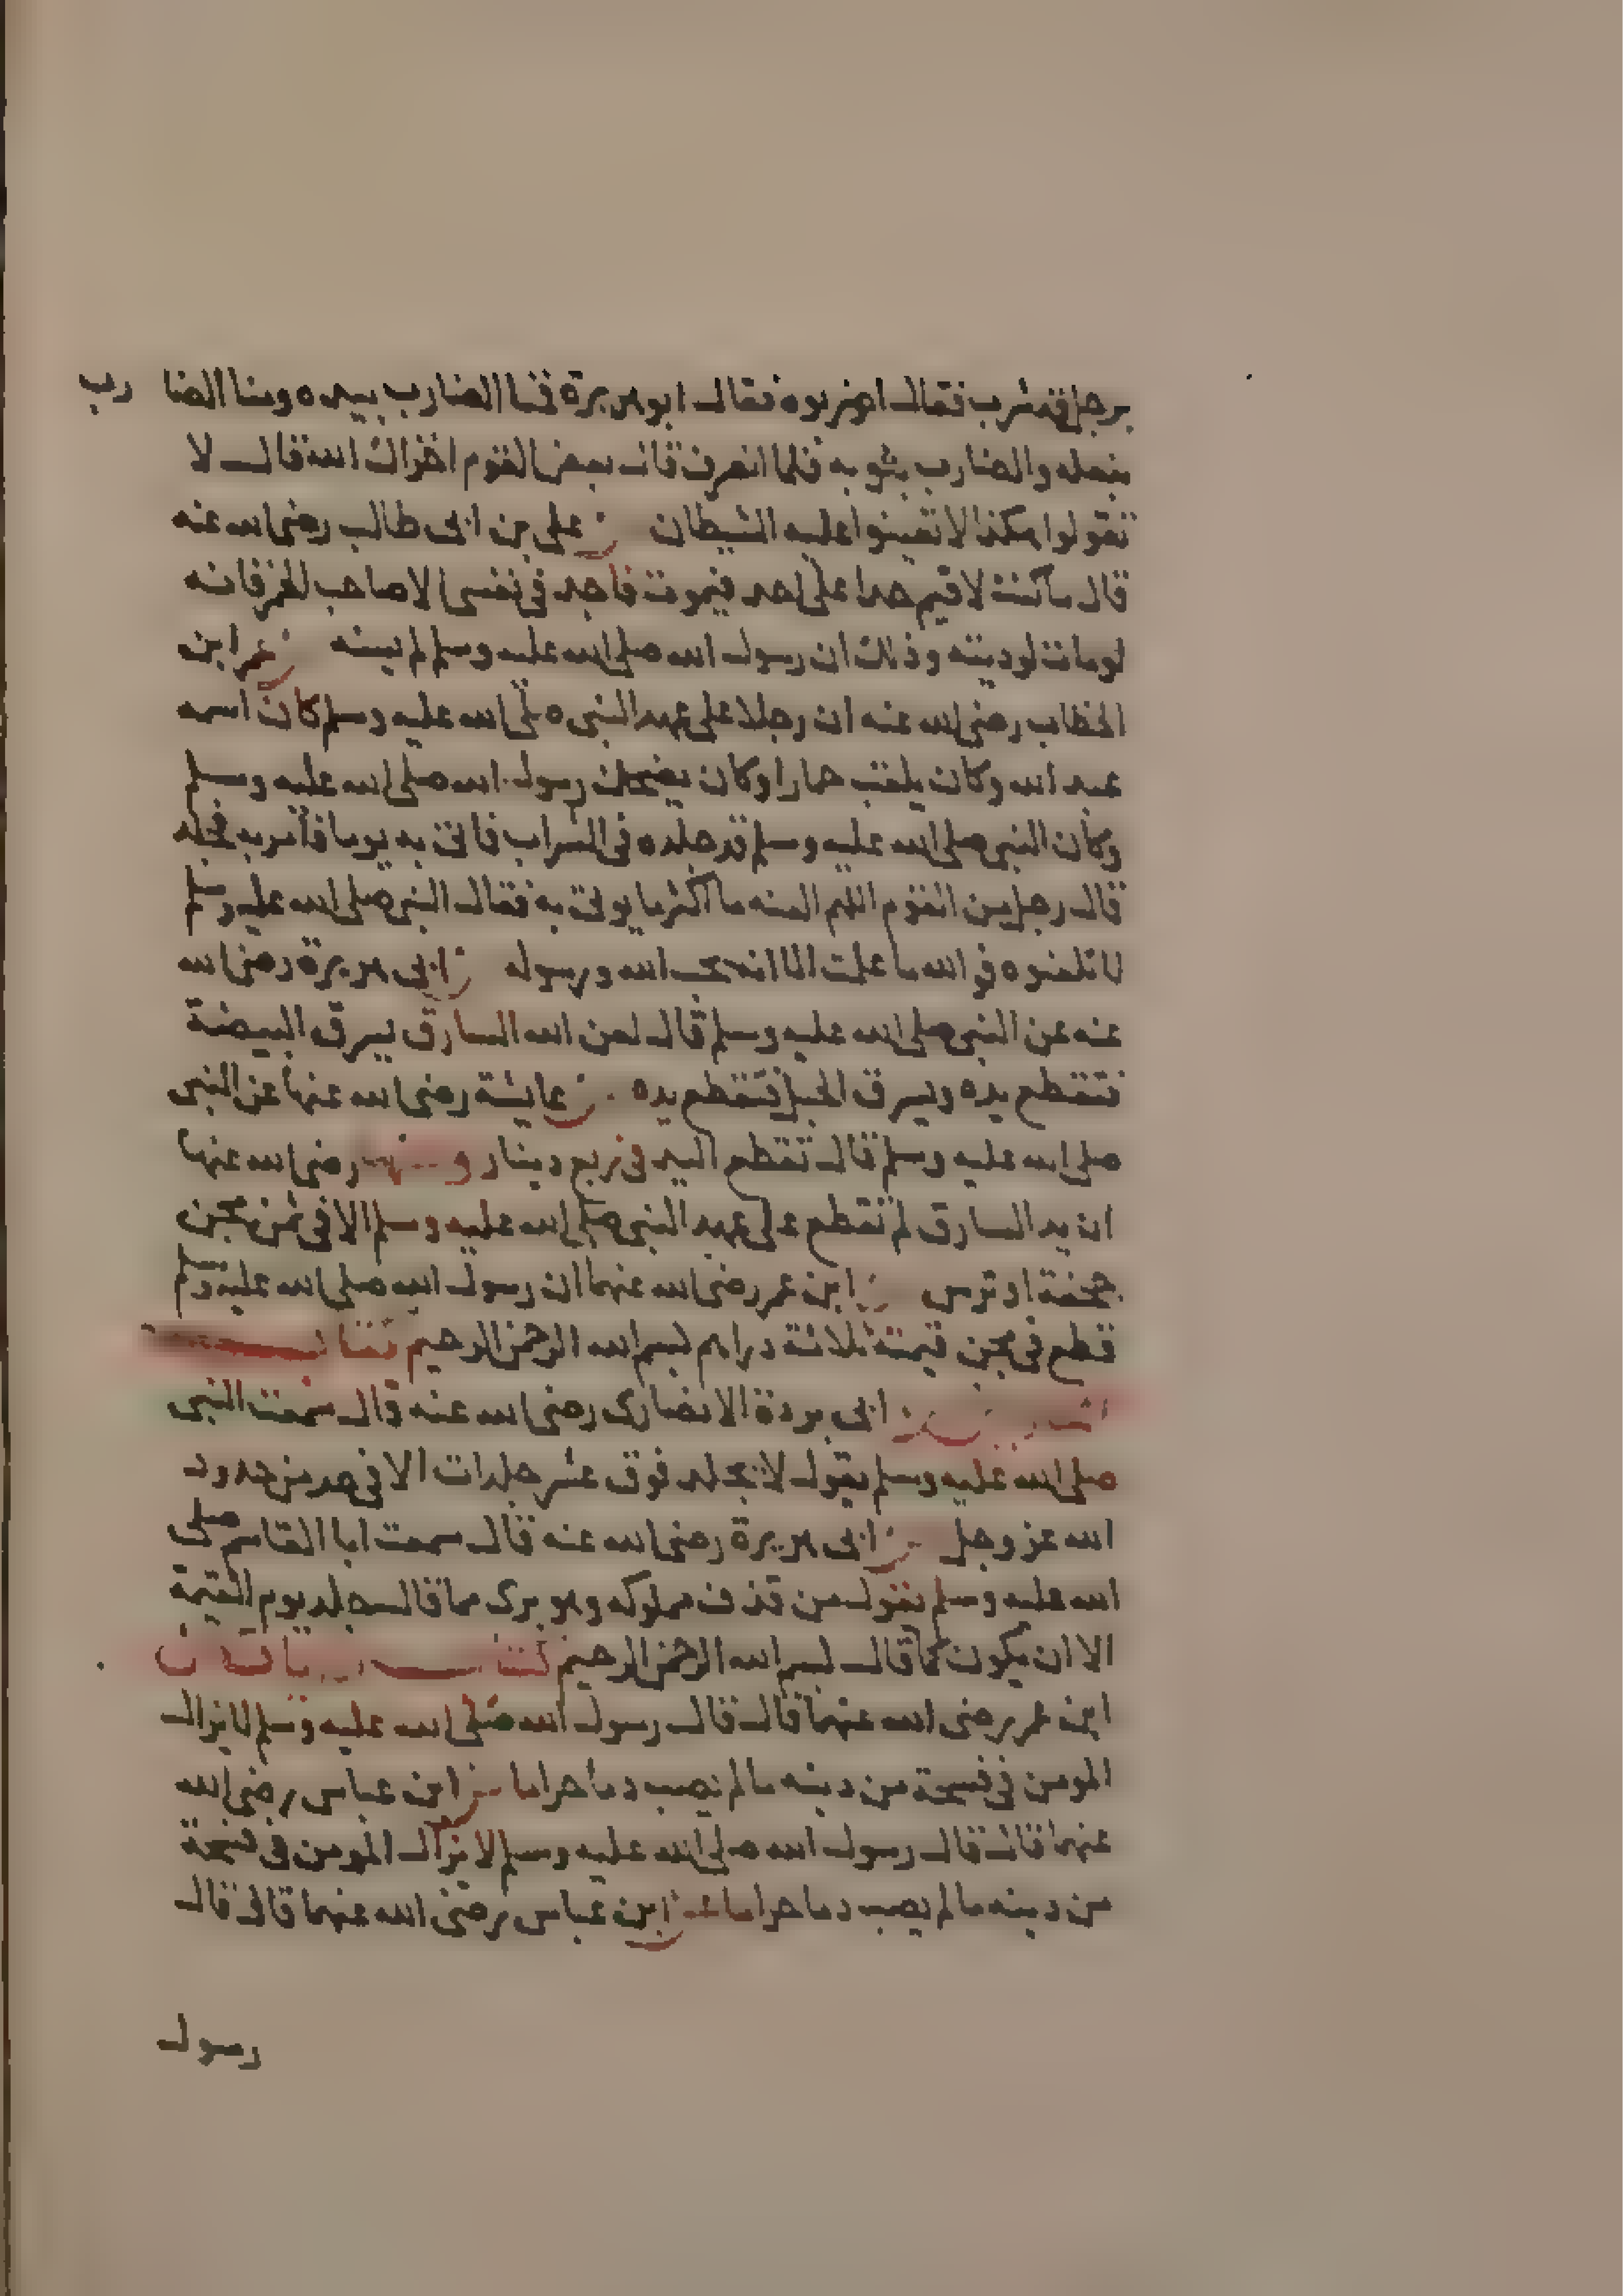 برجل قد شرب فقال اضربوه فقال ابو هريرة فمنا الضارب بيده ومنا الضارب
بنعله والضارب بثوبه فلما انصرف قال بعض القوم اخزاك الله قال لا
تقولوا هكذا لا تعينوا عليه الشيطان عن علي بن ابى طالب رضى الله عنه
قال ما كنت لاقيم حدا على احد فيموت فاجد في نفسى الا صاحب الخمر فانه
لو مات لوديته وذلك ان رسول الله صلى الله عليه وسلم لم يسنه عن عمر ابن
الخطاب رضى الله عنه ان رجلا على عهد النبى صلى الله عليه وسلم كان اسمه
عبد الله وكان يلقب حمارا وكان يضحك رسول الله صلى الله عليه وسلم
وكان النبى صلى الله عليه وسلم قد جلده فى الشراب فاتى به يوما فأمر به فجلد
قال رجل من القوم اللهم العنه ما اكثر ما يوتى به فقال النبى صلى الله عليه وسلم
لا تلعنوه فو الله ما علمت الا انه يحب الله ورسوله عن ابى هريرة رضى الله
عنه عن النبى صلى الله عليه وسلم قال لعن الله السارق يسرق البيضة
فتقطع يده ويسرق الحبل فتقطع يده عن عايشة رضى الله عنها عن النبى
صلى الله عليه وسلم قال تقطع اليد فى ربع دينار وعنها رضى الله عنها
ان يد السارق لم تقطع على عهد النبى صلى الله عليه وسلم الا فى ثمن مجن
حجفة او ترس عن ابن عمر رضى الله عنهما ان رسول الله صلى الله عليه وسلم
قطع فى مجن قيمته ثلاثة دراهم بسم الله الرحمن الرحيم كتاب
عن ابى بردة الانصارى رضى الله عنه قال سمعت النبى
صلى الله عليه وسلم يقول لا تجلد فوق عشر جلدات الا فى حد من حدود
الله عز وجل عن ابى هريرة رضى الله عنه قال سمعت ابا القاسم صلى
الله عليه وسلم يقول من قذف مملوكه وهو برى مما قال جلد يوم القيمة
الا ان يكون كما قال بسم الله الرحمن الرحيم كتاب الديات عن
ابن عمر رضى الله عنهما قال قال رسول الله صلى الله عليه وسلم لا يزال
المومن فى فسحة من دينه ما لم يصب دما حراما عن ابن عباس رضى الله
عنهما قال قال رسول الله صلى الله عليه وسلم لا يزال المومن فى فسحة
من دينه ما لم يصب دما حراما عن ابن عباس رضى الله عنهما قال قال
رسول